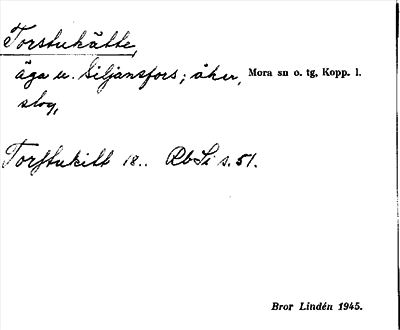 Torstukätte,
äga u. Siljansfors; åker, Mora sn o. tg, Kopp. l.
slog,
Torstukitt 18.. RbSi s. 51.
Bror Lindén 1945.